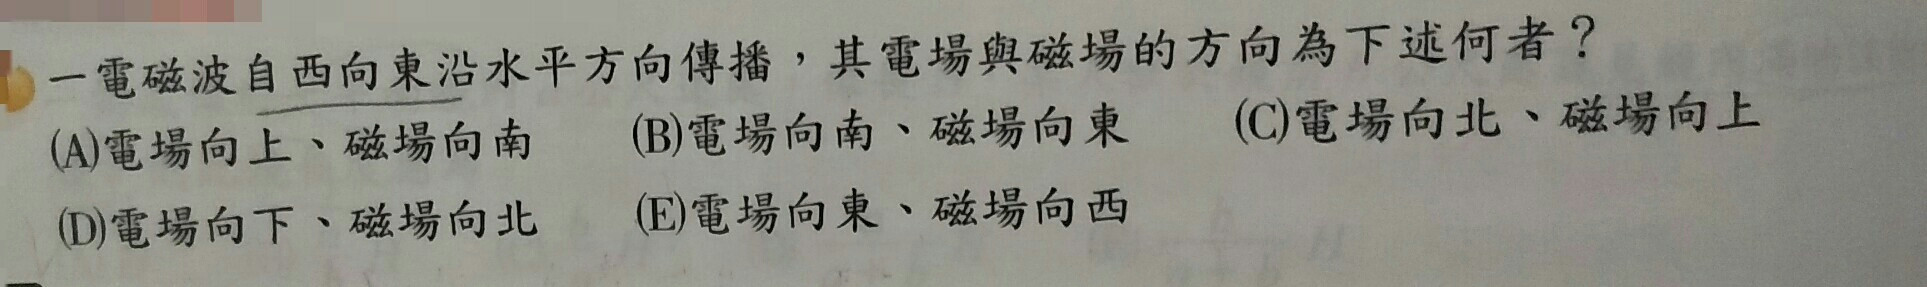 一電磁波自西向東沿水平方向傳播，其電場與磁場的方向為下述何者？
(A)電場向上、磁場向南 (B)電場向南、磁場向東 (C)電場向北、磁場向上
(D)電場向下、磁場向北 (E)電場向東、磁場向西